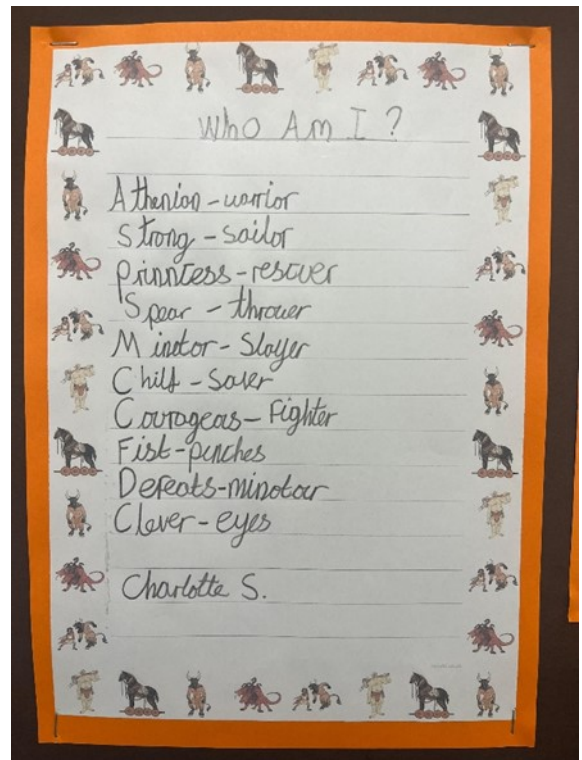 Who Am I ?
Athenian-warrior
Strong - sailor
Prinntess-rescuer
Spear - thrower
Minotor-Slayer
Child - Saver
Courageous-Fighter
Fist-punches
Defeats-minotour
Clever-eyes
Charlotte S.